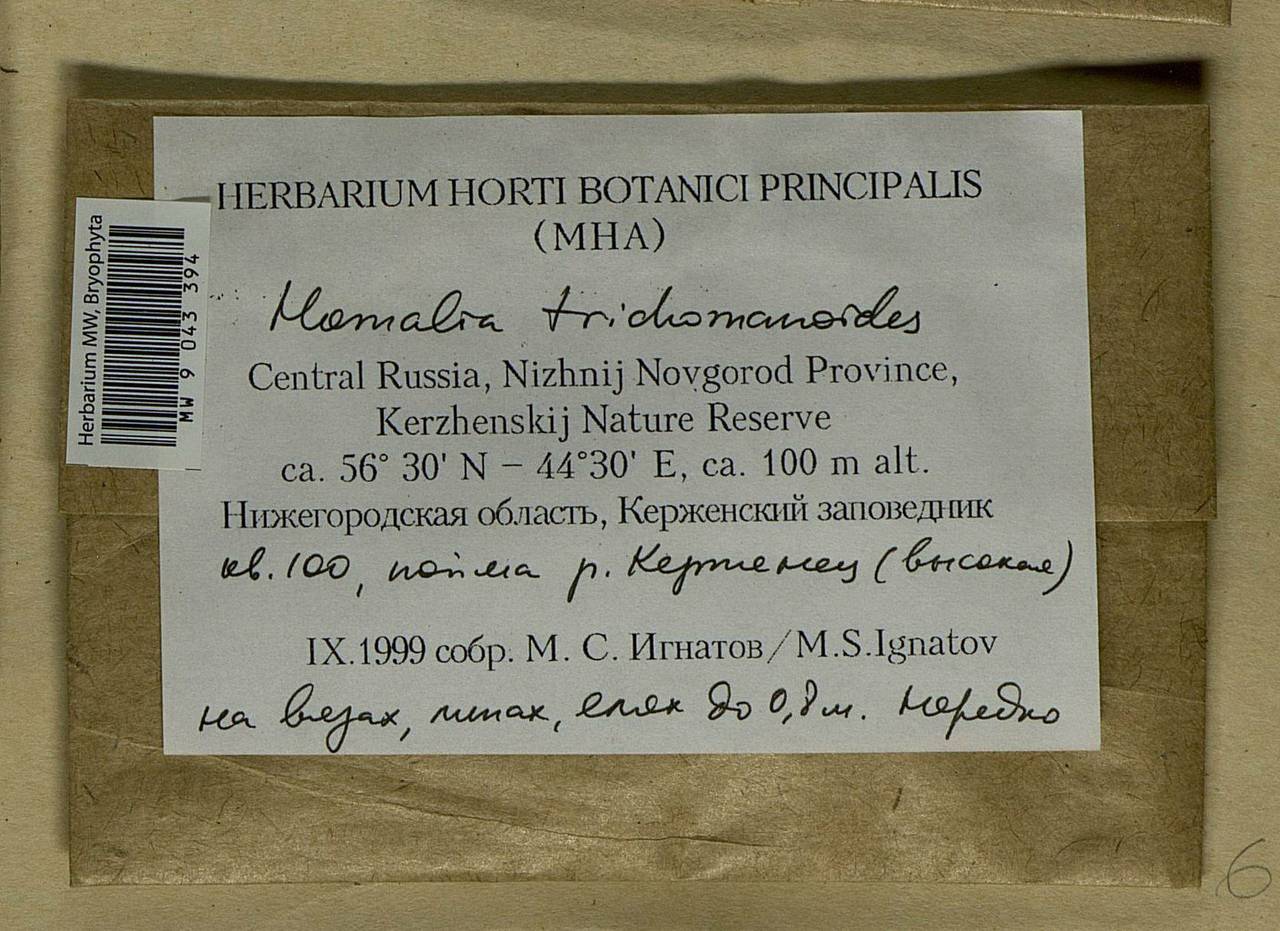 HERBARIUM HORTI BOTANICI PRINCIPALIS
(MHA)
Homalia trichomanoides
Central Russia, Nizhnij Novgorod Province,
Kerzhenskij Nature Reserve
ca. 56° 30' N – 44°30' E, ca. 100 m alt.
Нижегородская область, Керженский заповедник
кв. 100, пойма р. Керженец (высокая)
IX.1999 собр. М. С. Игнатов/M.S.Ignatov
на вязах, липах, елях до 0,8 м. нередко
Herbarium MW, Bryophyta
MW 9 043 394
6